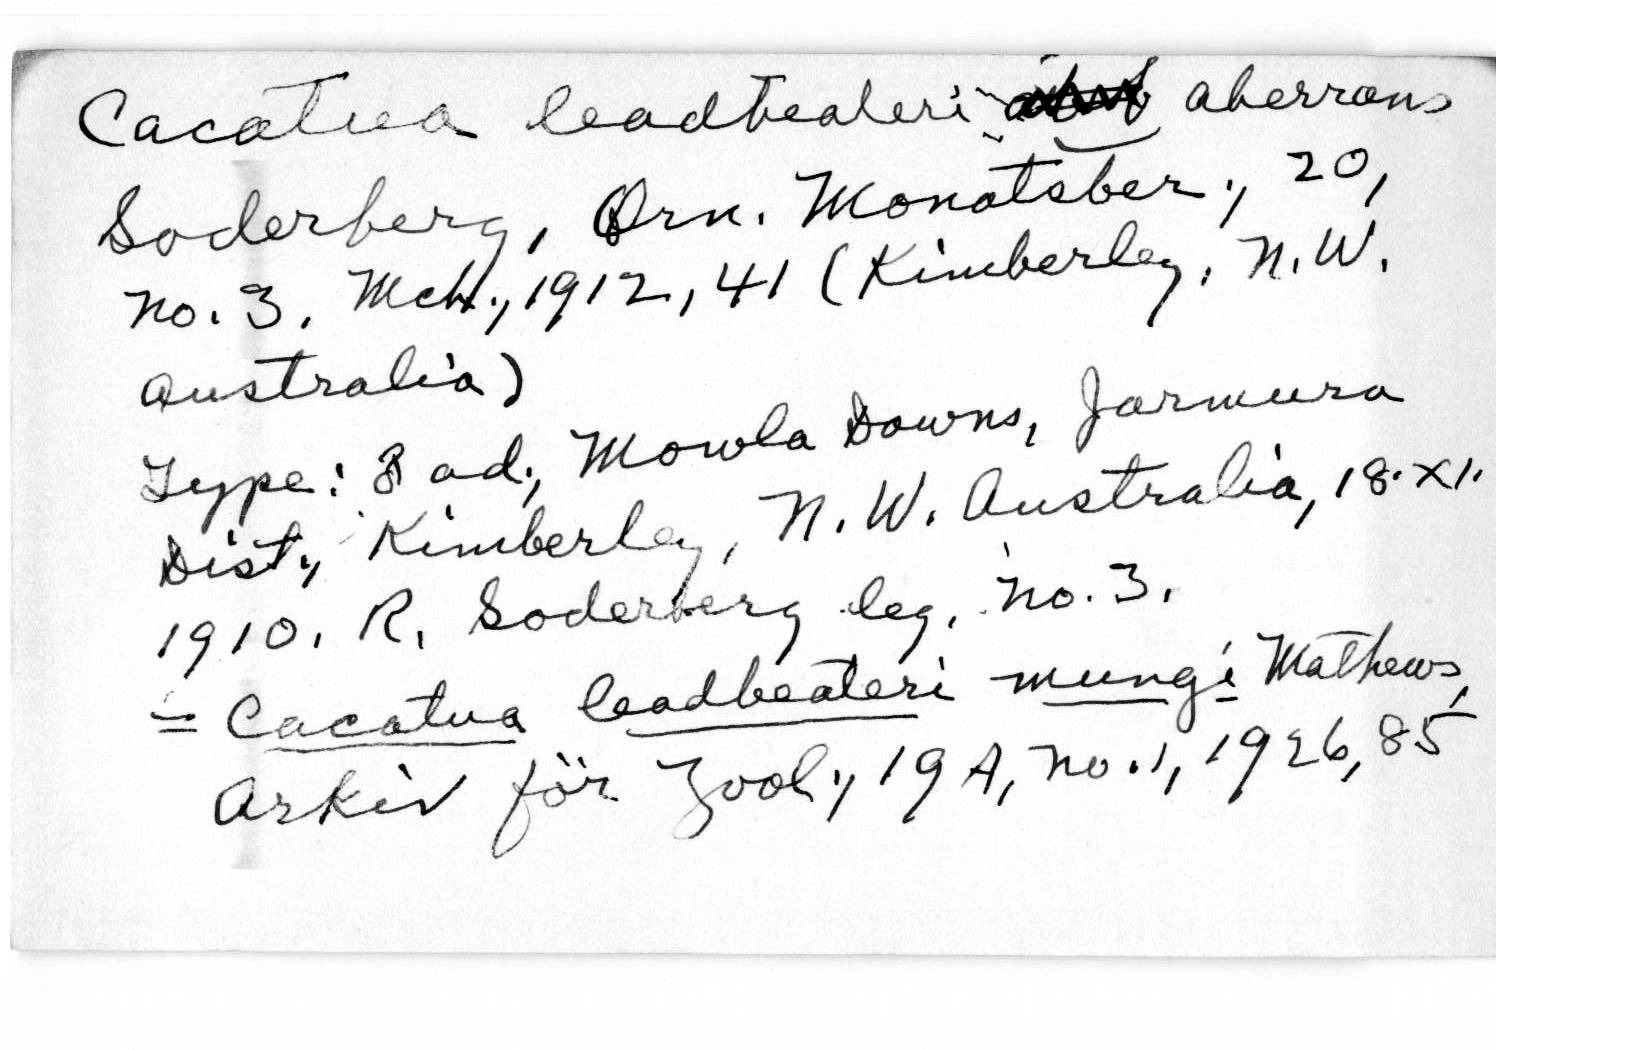 Cacatua leadbeateri aberrans
Soderberg, Orn. Monatsber., 20,
no. 3, Mch., 1912, 41 (Kimberley, N.W.
Australia)
Type: ad., Mowla Downs, Jarmura
Dist., Kimberley, N.W. Australia, 18.XI.
1910. R. Soderberg leg. no. 3.
= Cacatua leadbeateri mungi Mathews,
Arkiv för Zool., 19A, no. 1, 1926, 85